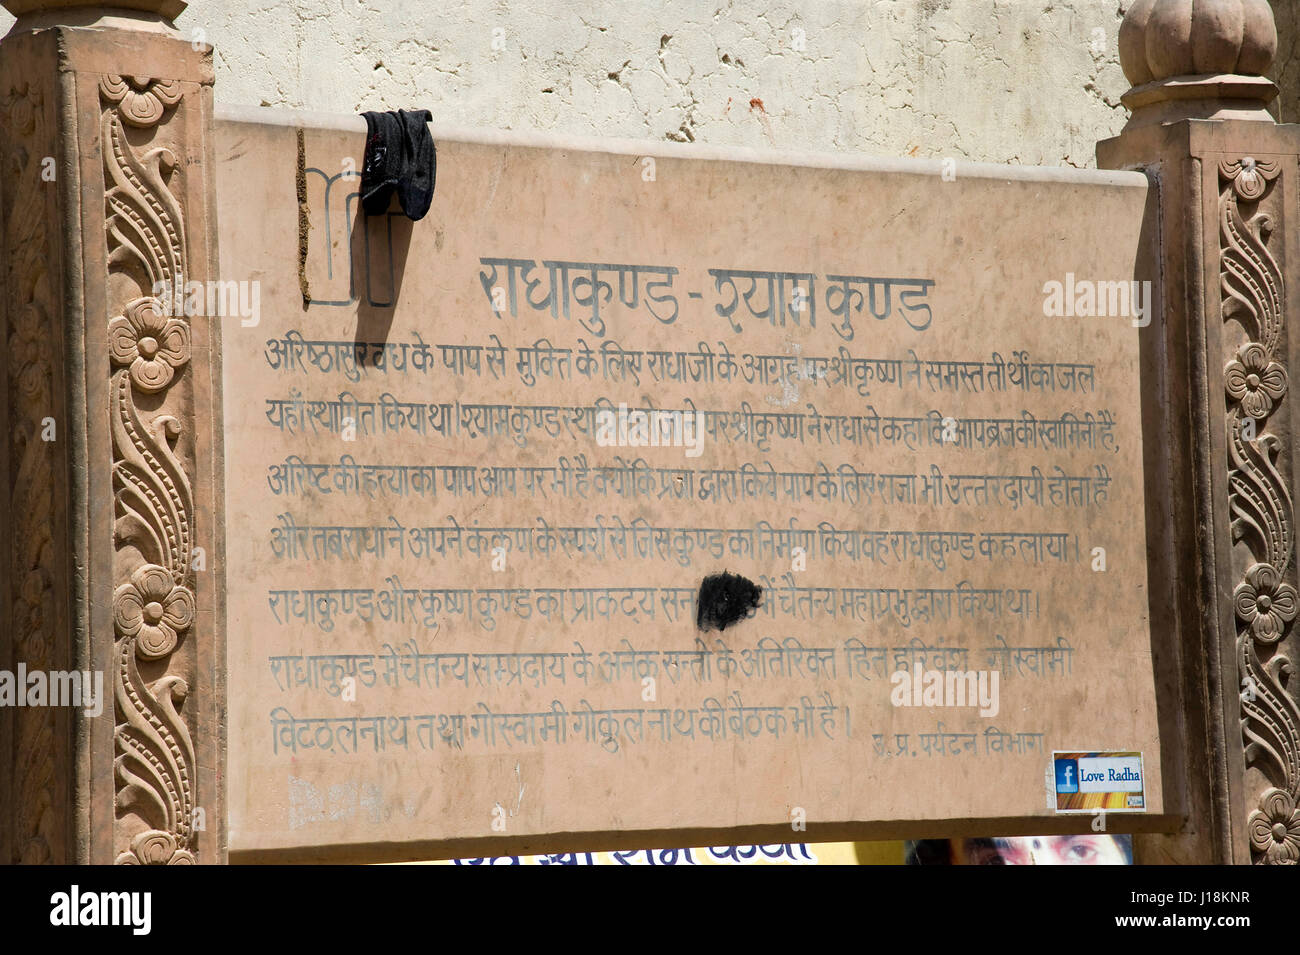 राधाकुण्ड - श्याम कुण्ड
अरिष्ठासुर वध के पाप से मुक्ति के लिए राधाजी के आग्रह पर श्रीकृष्ण ने समस्त तीर्थों का जल
यहाँ स्थापित किया था। श्यामकुण्ड स्थापित हो जाने पर श्रीकृष्ण ने राधा से कहा कि आप ब्रज की स्वामिनी हैं,
अरिष्ट की हत्या का पाप आप पर भी है क्योंकि प्रजा द्वारा किये पाप के लिए राजा भी उत्तरदायी होता है
और तब राधा ने अपने कंगण के स्पर्श से जिस कुण्ड का निर्माण किया वह राधाकुण्ड कहलाया।
राधाकुण्ड और कृष्ण कुण्ड का प्राकट्य सन में चैतन्य महाप्रभु द्वारा किया था।
राधाकुण्ड मे चैतन्य सम्प्रदाय के अनेक सन्तो के अतिरिक्त हित हरिवंश गोस्वामी
विट्ठलनाथ तथा गोस्वामी गोकुलनाथ की बैठक भी है।
उ. प्र. पर्यटन विभाग
f Love Radha
alamy stock photo
J18KNR
www.alamy.com